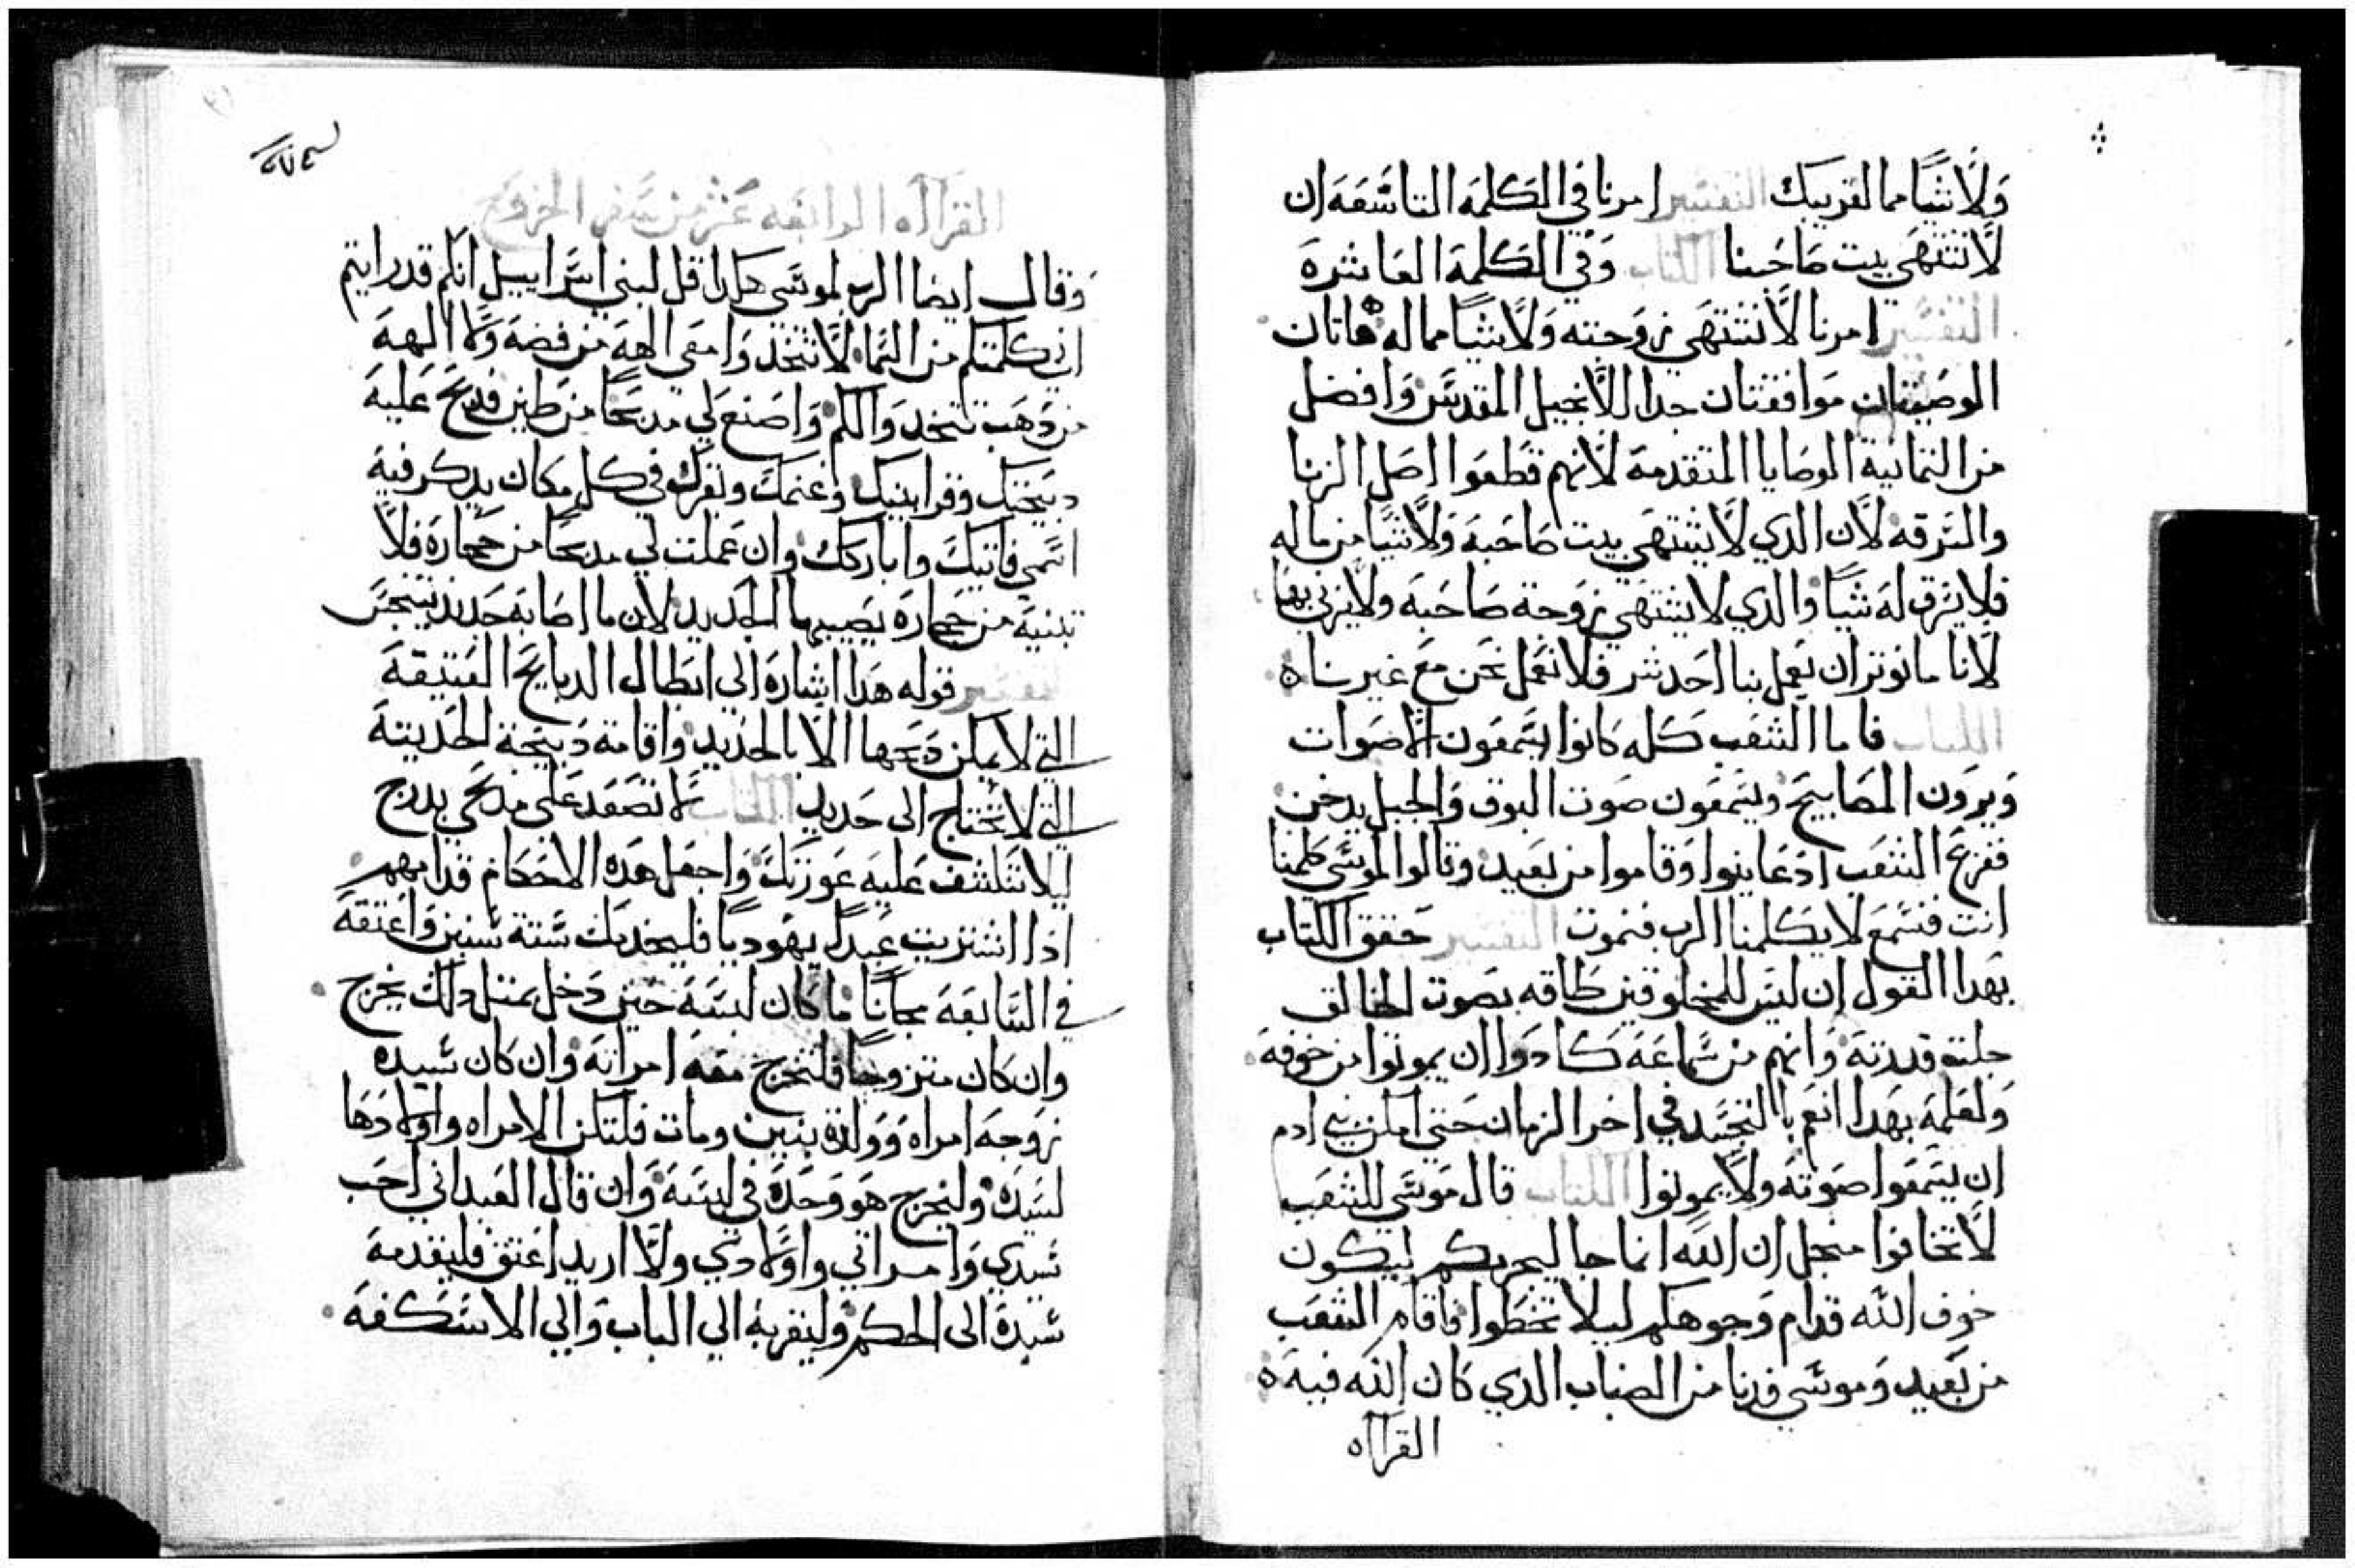 ولا شيا مما لقريبك التفسير امرنا في الكلمة التاسعه ان
لا نشتهي بيت صاحبنا الكتاب وفي الكلمة العاشرة
التفسير امرنا لا نشتهي زوجته ولا شيا مما له هاتان
الوصيتان موافقتان جدا للانجيل المقدس وافضل
من التمانية الوصايا المتقدمة لانهم قطعوا اصل الزنا
والسرقه لان الدي لا يشتهي بيت صاحبه ولا شيا من ماله
فلا يسرق له شيا والدي لا يشتهي زوجة صاحبه ولا يزني بها
لانا ما نوتر ان يعمل بنا احد شر فلا نعمل نحن مع غيرنا
الكتاب فاما الشعب كله كانوا يسمعون الاصوات
ويرون المصابيح ويسمعون صوت البوق والجبل يدخن
ففزع الشعب اد عاينوا وقاموا من بعيد وقالوا لموسي كلمنا
انت فنسمع لا يكلمنا الرب فنموت التفسير حقق الكتاب
بهدا القول ان ليس للمخلوقين طاقه بصوت الخالق
جلت قدرته وانهم من سماعه كادوا ان يموتوا من خوفه
ولعلمه بهدا انعم بالتجسد في اخر الزمان حتي امكن بني ادم
ان يسمعوا صوته ولا يموتوا الكتاب قال موسي للشعب
لا تخافوا منجل ان الله انما جا ليجربكم ليكون
خوف الله قدام وجوهكم ليلا تخطوا فاقام الشعب
من بعيد وموسي فدنا من الضباب الدي كان الله فيه
القرااه
القرااه الرابعه عشر من سفر الخروج
وقال ايضا الرب لموسي هكدا قل لبني اسراييل انكم قد رايتم
اني كلمتكم من السما لا تتخدوا معي الهة من فضة ولا الهة
من دهب تتخدوا لكم واصنع لي مدبحا من طين فدبح عليه
دبيحتك وقرابينك وغنمك وبقرك في كل مكان يدكر فيه
اسمي فاتيك واباركك وان عملت لي مدبحا من حجارة فلا
تبنيه من حجارة يصيبها الحديد لان ما اصابه حديد يتنجس
التفسير قوله هدا اشارة الي ابطال الدبايح العتيقة
التي لا يمكن دبحها الا بالحديد واقامة دبيحة الحديتة
التي لا تحتاج الى حديد الكتاب لا تصعد على مدبحي بدرج
ليلا تنكشف عليه عورتك واجعل هده الاحكام قدامهم
ادا اشتريت عبدا يهوديا فليخدمك ستة سنين واعتقه
في السابعة مجانا ما كان لبسه حين دخل بمتل دلك يخرج
وان كان متزوجا فلتخرج معه امراته وان كان سيده
زوجه امراه وولدة بنين ومات فلتكن الامراه واولادها
لسيده وليخرج هو وحده في لبسه وان قال العبد اني احب
سيدي وامراتي واولادي ولا اريد اعتق فليقدمه
سيدة الى الحكم وليقربه الي الباب والي الاسكفة